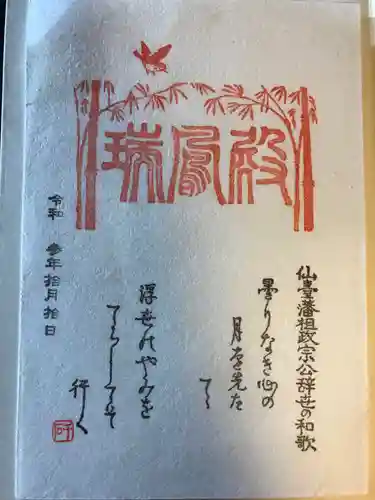 瑞鳳殿
仙臺藩祖政宗公辞世の和歌
曇りなき心の
月を先た
てゝ
浮世のやみを
てらしてそ
行く
令和 参年 拾月 拾日